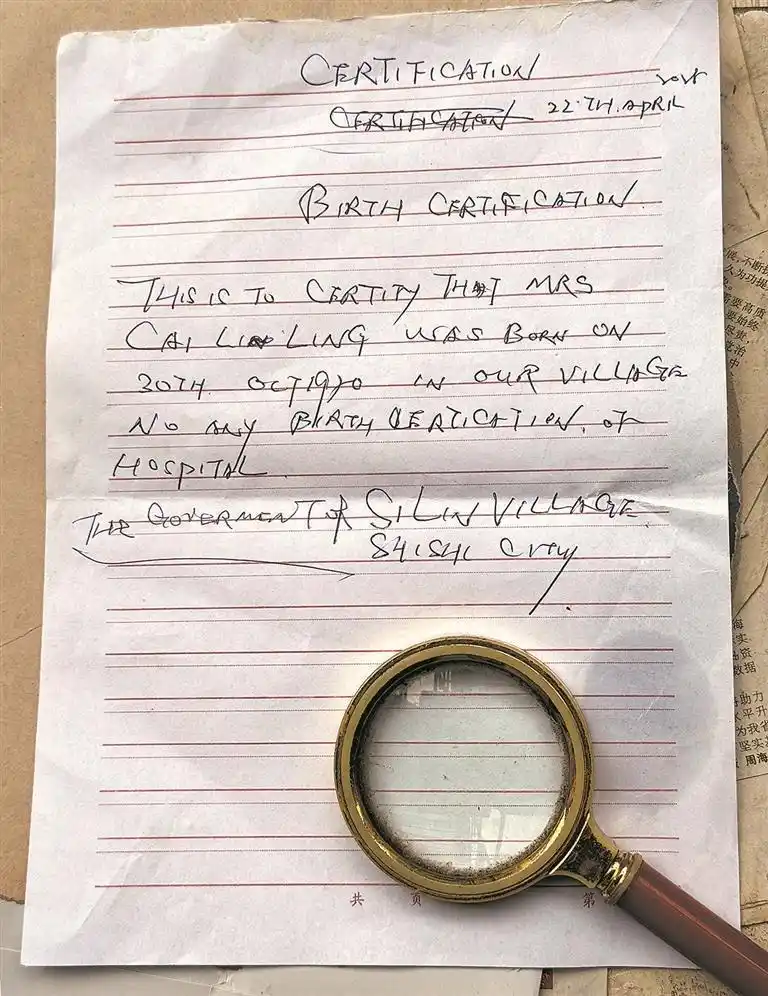 CERTIFICATION
CERTIFICATION 22TH. APRIL
BIRTH CERTIFICATION.
THIS IS TO CERTITY THAT MRS
CAI LING WAS BORN ON
30TH OCT 1970 IN OUR VILLAGE
NO ANY BIRTH CERTICATION. OF
HOSPITAL
THE GOVERMENT OF SILIN VILLAGE.
SHISHI CITY.
共 页 第
助力
水平升
为我省
坚实基
周海